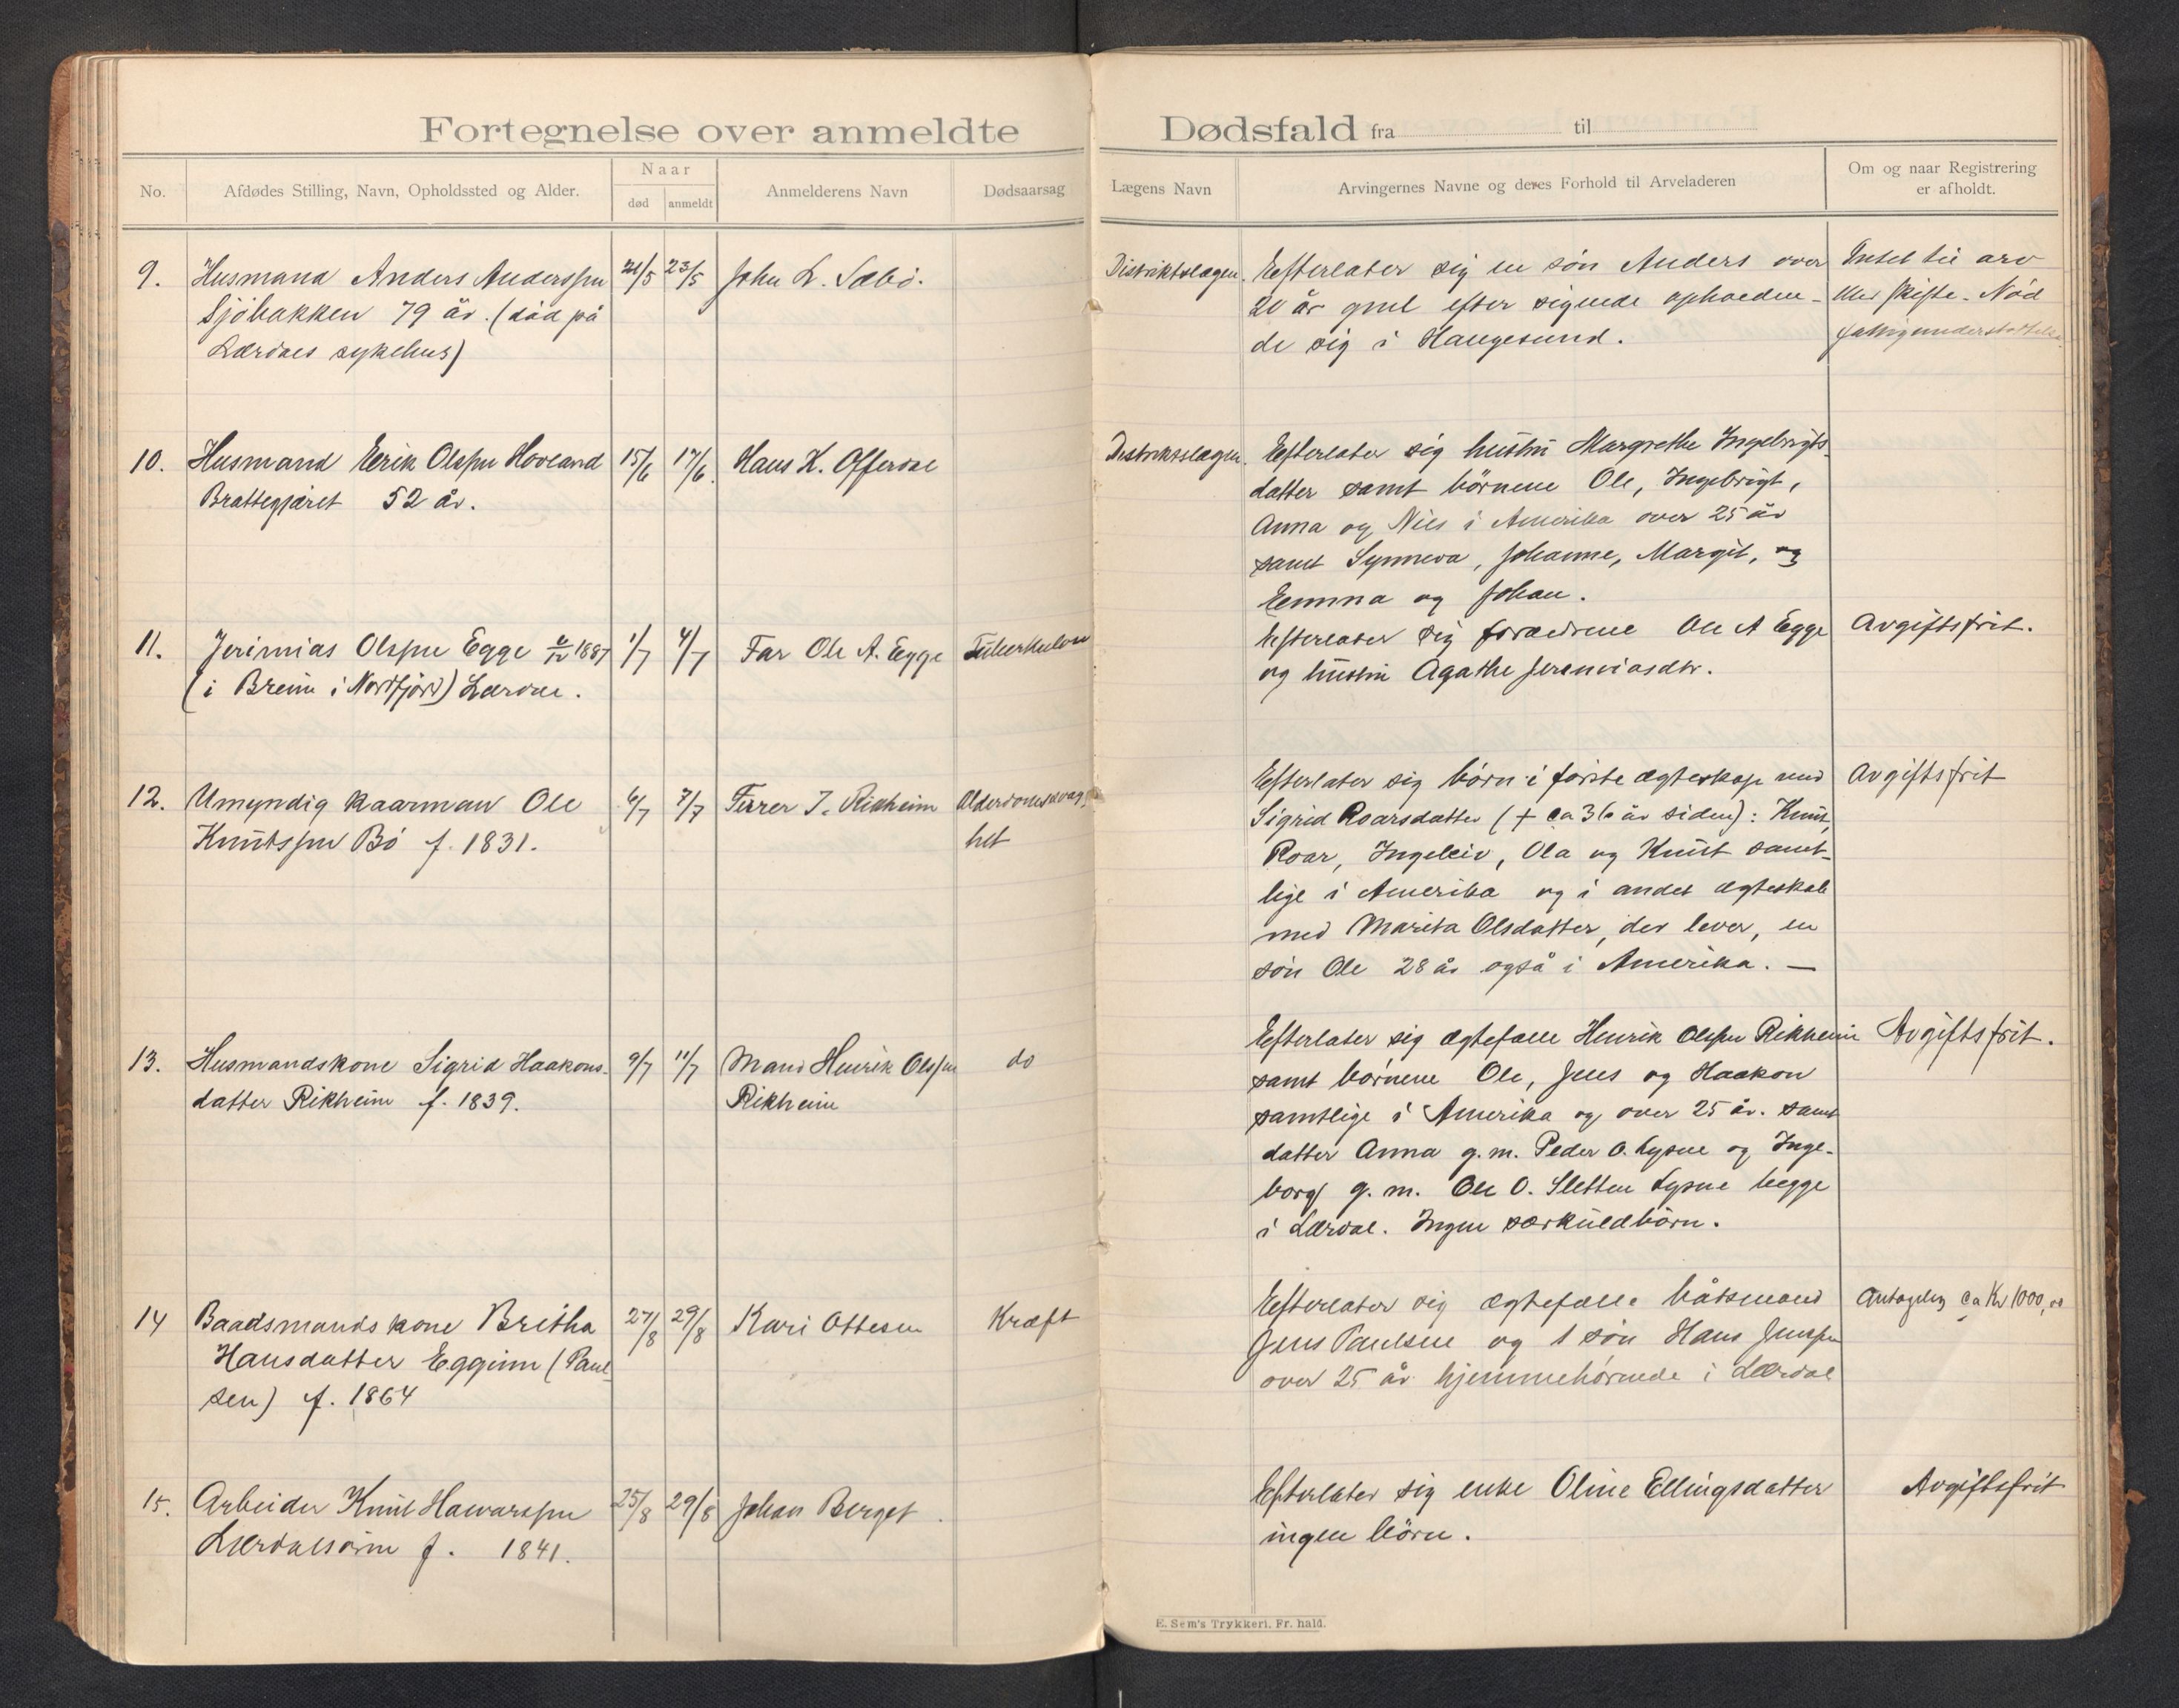 Fortegnelse over anmeldte Dødsfald fra til
No.
Afdødes Stilling, Navn, Opholdssted og Alder.
Naar
død
anmeldt
Anmelderens Navn
Dødsaarsag
Lægens Navn
Arvingernes Navne og deres Forhold til Arveladeren
Om og naar Registrering
er afholdt.
9. Husmand Anders Anderssen
Sjöbakken 79 år. (död på
Lærdals sykehus)
21/5 23/5 John L. Sæbö.
Distriktslægen.
Efterlater sig en sön Anders over
20 år gml efter sigende ophoeden-
de sig i Haugesund.
Intet til arv
eller skifte. Nöd
fattigunderstöttelse.
10. Husmand Eerik Olsen Hovland
Brattegjæret 52 år.
15/6 17/6. Hans K. Offerdal
Distriktslægen.
Efterlater sig hustru Margrethe Ingebrigts-
datter samt börnene Ole, Ingebrigt,
Anna og Nils i Amerika over 25 år
samt Synneva, Johanne, Margit, og
Eemma og Johan.
11. Jerimias Olsen Egge 1887
(i Breim i Nordfjord) Lærdal.
1/7 4/7 Far Ole A. Egge Tuberkulose
Efterlater sig forældrene Ole A Egge
og hustru Agathe Jeremiasdtr.
Avgiftsfrit.
12. Umyndig kaarmann Ole
Knutssen Bö f. 1831.
6/7 7/7 J. Rikheim Alderdomssvag-
het
Efterlater sig börn i förste ægteskap med
Sigrid Roarsdatter († ca 36 år siden): Knut,
Roar, Ingeleiv, Ola og Knut samt-
lige i Amerika og i andet ægteskab
med Marita Olsdatter, der lever, en
sön Ole 28 år også i Amerika. —
Avgiftsfrit
13. Husmandskone Sigrid Haakons-
datter Rikheim f. 1839.
9/7 11/7 Mand Henrik Olssen
Rikheim
do
Efterlater sig ægtefælle Henrik Olssen Rikheim
samt börnene Ole, Jens og Haakon
samtlige i Amerika og over 25 år. samt
datter Anna g.m. Peder O. Lysne og Inge-
borg g.m. Ole O. Sletten Lysne begge
i Lærdal. Ingen særkuldbörn.
Avgiftsfrit.
14 Baadsmandskone Britha
Hansdatter Eggum (Paul-
sen) f. 1864
27/8 29/8 Kari Ottesen Kræft
Efterlater sig ægtefælle båtsmand
Jens Paulsen og 1 sön Hans Jenssen
over 25 år hjemmehörende i Lærdal
Antagelig ca Kr 1000,00
15. Arbeider Knut Hawarssen
Lærdalsören f. 1841.
25/8 29/8 Johan Berget.
Efterlater sig enke Oline Ellingsdatter
ingen börn.
Avgiftsfrit
E. Sem's Trykkeri, Fr. hald.